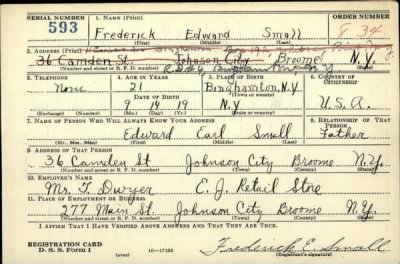 SERIAL NUMBER
593
1. NAME (Print)
Frederick Edward Small
(First) (Middle) (Last)
ORDER NUMBER
834
2. ADDRESS (Print)
36 Camden St. Johnson City Broome N.Y.
(Number and street or R. F. D. number) (Town) (County) (State)
3. TELEPHONE
None
(Exchange) (Number)
4. AGE IN YEARS
21
DATE OF BIRTH
9 14 19
(Mo.) (Day) (Yr.)
5. PLACE OF BIRTH
Binghamton, N.Y.
(Town or county)
N.Y
(State or country)
6. COUNTRY OF CITIZENSHIP
U.S.A.
7. NAME OF PERSON WHO WILL ALWAYS KNOW YOUR ADDRESS
Edward Earl Small
(Mr., Mrs., Miss) (First) (Middle) (Last)
8. RELATIONSHIP OF THAT PERSON
Father
9. ADDRESS OF THAT PERSON
36 Camden St Johnson City Broome N.Y.
(Number and street or R. F. D. number) (Town) (County) (State)
10. EMPLOYER'S NAME
Mr. T. Dwyer E. J. Retail Store
11. PLACE OF EMPLOYMENT OR BUSINESS
277 Main St. Johnson City Broome N.Y.
(Number and street or R. F. D. number) (Town) (County) (State)
I AFFIRM THAT I HAVE VERIFIED ABOVE ANSWERS AND THAT THEY ARE TRUE.
REGISTRATION CARD
D. S. S. Form 1
(over)
Frederick E. Small
(Registrant's signature)